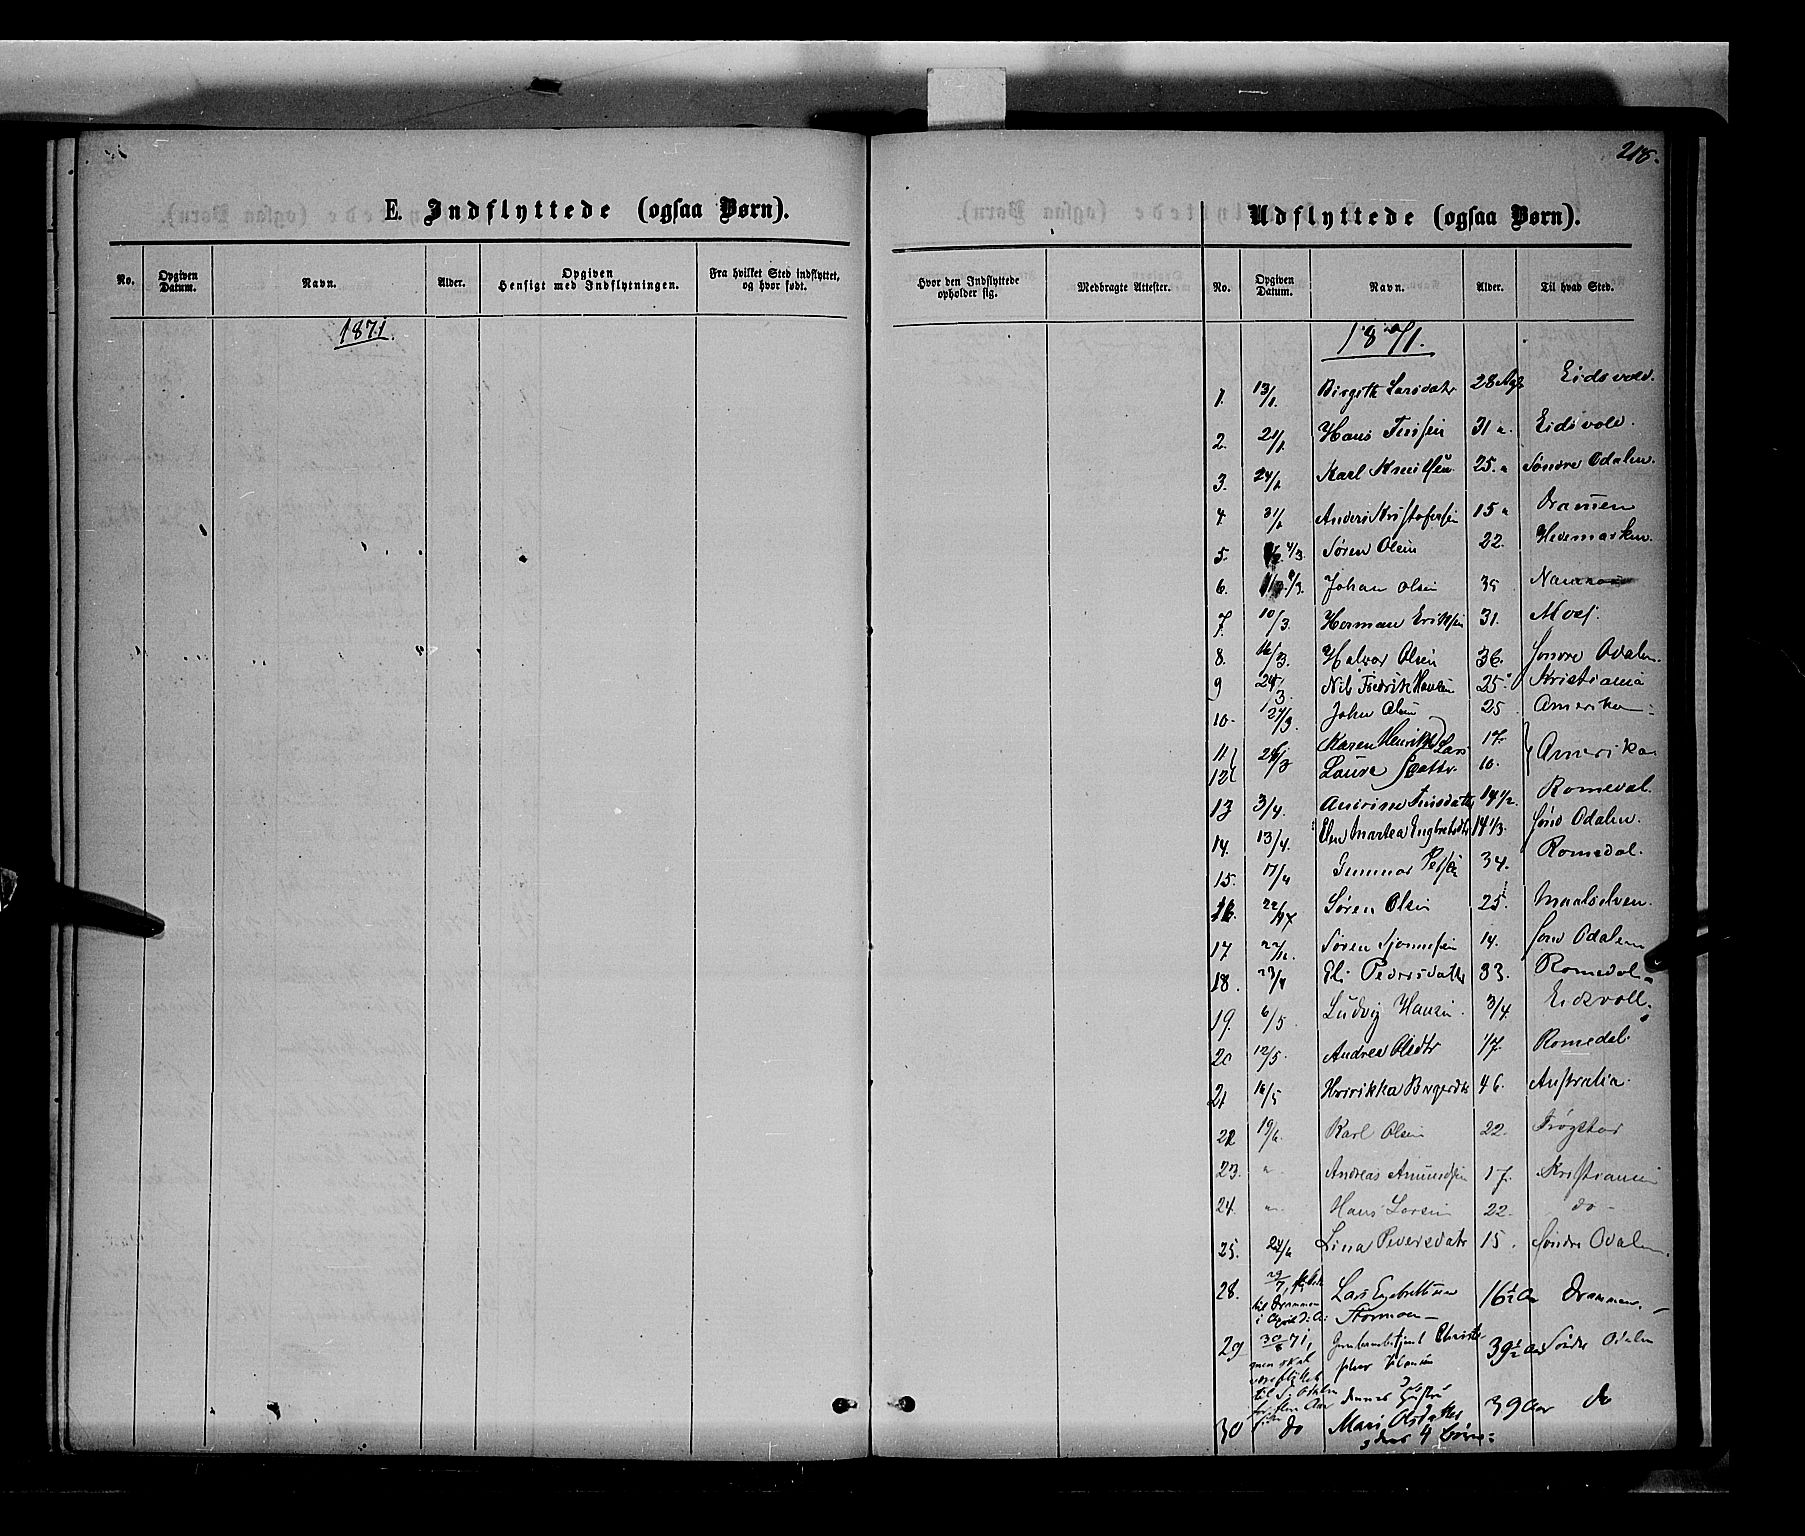 218.
E. Indflyttede (ogsaa Børn).
No. Opgiven Datum. Navn. Alder. Opgiven Hensigt med Indflytningen. Fra hvilket Sted indflyttet, og hvor født.
1871.
Udflyttede (ogsaa Børn).
Hvor den Indflyttede opholder sig. Medbragte Attester. No. Opgiven Datum. Navn. Alder. Til hvad Sted.
1871.
1. 13/1. Birgith Larsdatr 28 Eidsvold.
2. 21/1 Hans 31 " Eidsvold.
3. 24/1 Karl Knudsen 25. " Søndre Odalen.
4. 31/1 Anders Kristofersen 15 " Dramen
5. 4/3. Søren Olsen 22. Hedemarken.
6. /3. Johan Olsen 35
7. 10/3. Herman Eriksen 31. Moss.
8. 16/3. Halvor Olsen 36. Søndre Odalen.
9 24/3. Nils Fredrik Hansen 25. Kristiania
10. 24/3. John Olsen 25 Amerika
11 24/3 Karen Henrikke Lars 17. Amerika
12 Laura Datr. 10.
13 3/4. Finsdatr 14 1/2. Romedal.
14. 13/4. Martea Engbretsdtr 14 1/3. Sønd Odalen.
15. 17/4 Gunnar 34. Romedal.
16. 22/4 Søren Olsen 25. Maalselven.
17 22/4. Søren 14. Sønd Odalen
18. 23/4 Eli Pedersdatr 33. Romedal
19. 6/5. Ludvig Hansen. 3/4. Eidsvoll.
20 12/5. Andrea Olsdtr 17. Romedal.
21 16/5 46. Australia.
22 19/6. Karl Olsen 22. Trøgstad
23. " Andreas Amundsen 17. Kristiania
24. " Hans Larsen 22. do
25. 24/6 Lina Pedersdatr 15. Søndre Odalen.
28. 29/7, Lars Engebrettsen 16½ Aar Drammen.
til Drammen
i April d. A. Stormoen
29 30/8 71, Christo- 39½ Aar Søndre Odalen
men skal pher
være flyttet
til S. Odalen dennes Hustru
for flere Aar
30 siden do Mari Olsdatter 39 Aar do
og deres 4 Børn